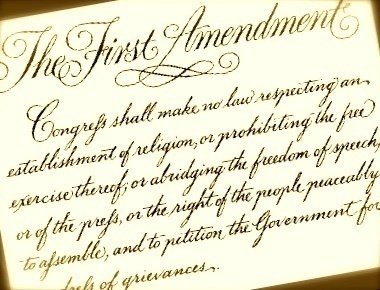 The First Amendment
Congreſs shall make no law respecting an
establishment of religion, or prohibiting the free
exercise thereof; or abridging the freedom of speech,
or of the preſs, or the right of the people peaceably
to aſsemble, and to petition the Government for
of grievances.